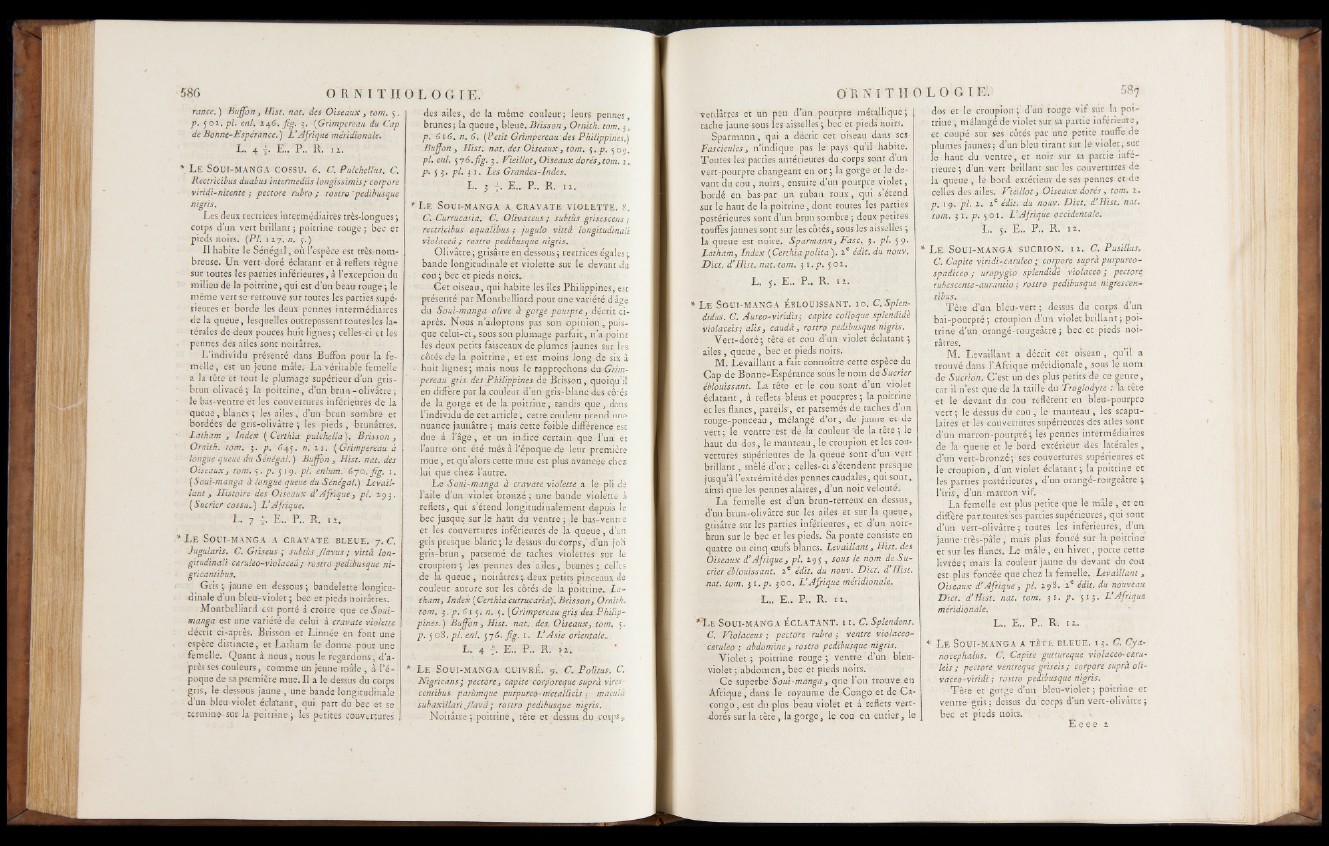 586
ORNITHOLOGIE.
rance.) Buffon, Hist. nat. des Oiseaux, tom. 5.
p. 502. pl. enl. 246. fig. 3. (Grimpereau du Cap
de Bonne-Espérance.) L'Afrique méridionale.
L. 4 ½. E.. P.. R. 12.
* LE SOUI-MANGA COSSU. 6. C. Pulchellus. C.
Rectricibus duabus intermediis longissimis; corpore
viridi-nitente; pectore rubro; rostro pedibusque
nigris.
Les deux rectrices intermédiaires très-longues;
corps d'un vert brillant; poitrine rouge; bec et
pieds noirs. (Pl. 127. n. 5.)
Il habite le Sénégal, où l'espèce est très-nom-
breuse. Un vert-doré éclatant et à reflets règne
sur toutes les parties inférieures, à l'exception du
milieu de la poitrine, qui est d'un beau rouge; le
même vert se retrouve sur toutes les parties supé-
rieures et borde les deux pennes intermédiaires
de la queue, lesquelles outrepassent toutes les la-
térales de deux pouces huit lignes; celles-ci et les
pennes des ailes sont noirâtres.
L'individu présenté dans Buffon pour la fe-
melle, est un jeune mâle. La véritable femelle
a la tête et tout le plumage supérieur d'un gris-
brun olivacé; la poitrine, d'un brun-olivâtre;
le bas-ventre et les couvertures inférieures de la
queue, blancs; les ailes, d'un brun sombre et
bordées de gris-olivâtre; les pieds, brunâtres.
Latham, Index (Certhia pulchella). Brisson,
Ornith. tom. 3. p. 645. n. 21. (Grimpereau à
longue queue du Sénégal.) Buffon, Hist. nat. des
Oiseaux, tom. 5. p. 519. pl. enlum. 670. fig. 1.
(Soui-manga à longue queue du Sénégal.) Levail-
lant, Histoire des Oiseaux d'Afrique, pl. 293.
(Sucrier cossu.) L'Afrique.
L. 7 ½. E.. P.. R. 12.
* LE SOUI-MANGA A CRAVATE BLEUE. 7. C.
Jugularis. C. Griseus; subtùs flavus; vittâ lon-
gitudinali caruleo-violaceâ; rostro pedibusque ni-
gricantibus.
Gris; jaune en dessous; bandelette longitu-
dinale d'un bleu-violet; bec et pieds noirâtres.
Montbelliard est porté à croire que ce Soui-
manga est une variété de celui à cravate violette
décrit ci-après. Brisson et Linnée en font une
espèce distincte, et Latham le donne pour une
femelle. Quant à nous, nous le regardons, d'a-
près ses couleurs, comme un jeune mâle, à l'é-
poque de sa première mue. Il a le dessus du corps
gris, le dessous jaune, une bande longitudinale
d'un bleu-violet éclatant, qui part du bec et se
termine sur la poitrine; les petites couvertures
des ailes, de la même couleur; leurs pennes,
brunes; la queue, bleue. Brisson, Ornith. tom. 3.
p. 616. n. 6. (Petit Grimpereau des Philippines.)
Buffon, Hist. nat. des Oiseaux, tom. 5. p. 509.
pl. enl. 576. fig. 3. Vieillot, Oiseaux dorés, tom. 2.
p. 53. pl. 31. Les Grandes-Indes.
L. 3 ½. E.. P.. R. 12.
* LE SOUI-MANGA A CRAVATE VIOLETTE. 8.
C. Currucaria. C. Olivaceus; subtùs grisescens;
rectricibus equalibus; jugulo vittâ longitudinali
violaceâ; rostro pedibusque nigris.
Olivâtre; grisâtre en dessous; rectrices égales;
bande longitudinale et violette sur le devant du
cou; bec et pieds noirs.
Cet oiseau, qui habite les îles Philippines, est
présenté par Montbelliard pour une variété d'âge
du Soui-manga olive à gorge pourpre, décrit ci-
après. Nous n'adoptons pas son opinion, puis-
que celui-ci, sous son plumage parfait, n'a point
les deux petits faisceaux de plumes jaunes sur les
côtés de la poitrine, et est moins long de six à
huit lignes; mais nous le rapprochons du Grim-
pereau gris des Philippines de Brisson, quoiqu'il
en diffère par la couleur d'un gris-blanc des côtés
de la gorge et de la poitrine, tandis que, dans
l'individu de cet article, cette couleur prend une
nuance jaunâtre; mais cette foible différence est
due à l'âge, et un indice certain que l'un et
l'autre ont été mués à l'époque de leur première
mue, et qu'alors cette mue est plus avancée chez
lui que chez l'autre.
Le Soui-manga à cravate violette a le pli de
l'aile d'un violet bronzé; une bande violette à
reflets, qui s'étend longitudinalement depuis le
bec jusque sur le haut du ventre; le bas-ventre
et les couvertures inférieures de la queue, d'un
gris presque blanc; le dessus du corps, d'un joli
gris-brun, parsemé de taches violettes sur le
croupion; les pennes des ailes, brunes; celles
de la queue, noirâtres; deux petits pinceaux de
couleur aurore sur les côtés de la poitrine. La-
tham, Index (Certhia currucaria). Brisson, Ornith.
tom. 3. p. 615. n. 5. (Grimpereau gris des Philip-
pines.) Buffon, Hist. nat. des Oiseaux, tom. 5.
p. 508. pl. enl. 576. fig. 1. L'Asie orientale.
L. 4 ½. E.. P.. R. 12.
* LE SOUI-MANGA CUIVRÉ. 9. C. Politus. C.
Nigricans; pectore, capite corporeque suprà vires-
centibus parùmque purpureo-metallicis; maculâ
subaxillari flavâ; rostro pedibusque nigris.
Noirâtre; poitrine, tête et dessus du corps,
ORNITHOLOGIE.
587
verdâtres et un peu d'un pourpre métallique;
tache jaune sous les aisselles; bec et pieds noirs.
Sparmann, qui a décrit cet oiseau dans ses
Fascicules, n'indique pas le pays qu'il habite.
Toutes les parties antérieures du corps sont d'un
vert-pourpre changeant en or; la gorge et le de-
vant du cou, noirs, ensuite d'un pourpre violet,
bordé en bas par un ruban roux, qui s'étend
sur le haut de la poitrine, dont toutes les parties
postérieures sont d'un brun sombre; deux petites
touffes jaunes sont sur les côtés, sous les aisselles;
la queue est noire. Sparmann, Fasc. 3. pl. 59.
Latham, Index (Certhia polita). 2e édit. du nouv.
Dict. d'Hist. nat. tom. 31. p. 502.
L. 5. E.. P.. R. 12.
* LE SOUI-MANGA ÉBLOUISSANT. 10. C. Splen-
didus. C. Aureo-viridis; capite colloque splendidè
violaceis; alis, caudâ, rostro pedibusque nigris.
Vert-doré; tête et cou d'un violet éclatant;
ailes, queue, bec et pieds noirs.
M. Levaillant a fait connoître cette espèce du
Cap de Bonne-Espérance sous le nom de Sucrier
éblouissant. La tête et le cou sont d'un violet
éclatant, à reflets bleus et pourpres; la poitrine
et les flancs, pareils, et parsemés de taches d'un
rouge-ponceau, mélangé d'or, de jaune et de
vert; le ventre est de la couleur de la tête; le
haut du dos, le manteau, le croupion et les cou-
vertures supérieures de la queue sont d'un vert
brillant, mêlé d'or; celles-ci s'étendent presque
jusqu'à l'extrémité des pennes caudales, qui sont,
ainsi que les pennes alaires, d'un noir velouté.
La femelle est d'un brun-terreux en dessus,
d'un brun-olivâtre sur les ailes et sur la queue,
grisâtre sur les parties inférieures, et d'un noir-
brun sur le bec et les pieds. Sa ponte consiste en
quatre ou cinq œufs blancs. Levaillant, Hist. des
Oiseaux d'Afrique, pl. 295, sous le nom de Su-
crier éblouissant. 2e édit. du nouv. Dict. d'Hist.
nat. tom. 31. p. 500. L'Afrique méridionale.
L.. E.. P.. R. 12.
* LE SOUI-MANGA ÉCLATANT. 11. C. Splendens.
C. Violacens; pectore rubro; ventre violaceo-
caruleo; abdomine, rostro pedibusque nigris.
Violet; poitrine rouge; ventre d'un bleu-
violet; abdomen, bec et pieds noirs.
Ce superbe Soui-manga, que l'on trouve en
Afrique, dans le royaume de Congo et de Ca-
congo, est du plus beau violet et à reflets vert-
dorés sur la tête, la gorge, le cou en entier, le
dos et le croupion; d'un rouge vif sur la poi-
trine, mélangé de violet sur sa partie inférieure,
et coupé sur ses côtés par une petite touffe de
plumes jaunes; d'un bleu tirant sur le violet, sur
le haut du ventre, et noir sur sa partie infé-
rieure; d'un vert brillant sur les couvertures de
la queue, le bord extérieur de ses pennes et de
celles des ailes. Vieillot, Oiseaux dorés, tom. 2.
p. 19. pl. 2. 2e édit. du nouv. Dict. d'Hist. nat.
tom. 31. p. 501. L'Afrique occidentale.
L. 5. E.. P.. R. 12.
* LE SOUI-MANGA SUCRION. 12. C. Pusillus.
C. Capite viridi-caruleo; corpore suprà purpureo-
spadiceo; uropygio splendidè violaceo; pectore
rubescente-aurantio; rostro pedibusque nigrescen-
tibus.
Tête d'un bleu-vert; dessus du corps d'un
bai-pourpré; croupion d'un violet brillant; poi-
trine d'un orangé-rougeâtre; bec et pieds noi-
râtres.
M. Levaillant a décrit cet oiseau, qu'il a
trouvé dans l'Afrique méridionale, sous le nom
de Sucrion. C'est un des plus petits de ce genre,
car il n'est que de la taille du Troglodyte: la tête
et le devant du cou reflètent en bleu-pourpre
vert; le dessus du cou, le manteau, les scapu-
laires et les couvertures supérieures des ailes sont
d'un marron-pourpré; les pennes intermédiaires
de la queue et le bord extérieur des latérales,
d'un vert-bronzé; ses couvertures supérieures et
le croupion, d'un violet éclatant; la poitrine et
les parties postérieures, d'un orangé-rougeâtre;
l'iris, d'un marron vif.
La femelle est plus petite que le mâle, et en
diffère par toutes ses parties supérieures, qui sont
d'un vert-olivâtre; toutes les inférieures, d'un
jaune très-pâle, mais plus foncé sur la poitrine
et sur les flancs. Le mâle, en hiver, porte cette
livrée; mais la couleur jaune du devant du cou
est plus foncée que chez la femelle. Levaillant,
Oiseaux d'Afrique, pl. 298. 2e édit. du nouveau
Dict. d'Hist. nat. tom. 31. p. 513. L'Afrique
méridionale.
L.. E.. P.. R. 12.
* LE SOUI-MANGA A TÊTE BLEUE. 13. C. Cya-
nocephalus. C. Capite guttureque violaceo-caru-
leis; pectore ventreque griseis; corpore suprà oli-
vaceo-viridi; rostro pedibusque nigris.
Tête et gorge d'un bleu-violet; poitrine et
ventre gris; dessus du corps d'un vert-olivâtre;
bec et pieds noirs.
Eeee 2